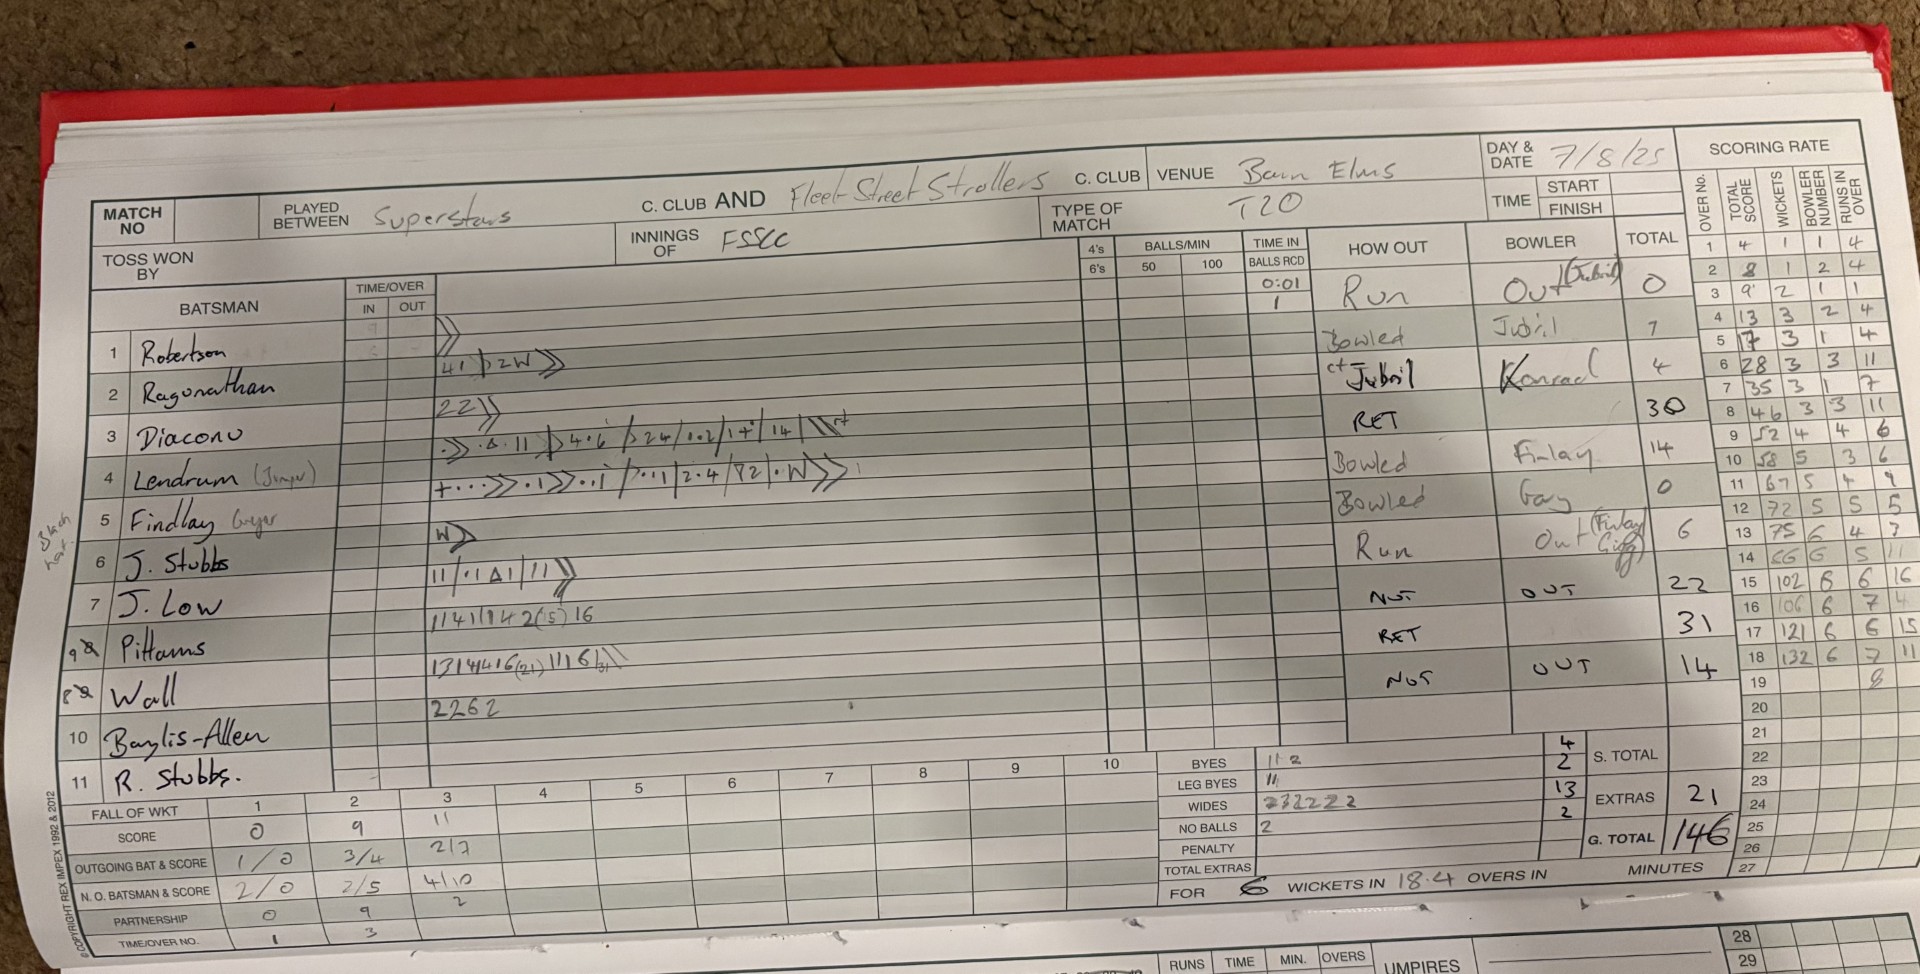 MATCH NO
PLAYED BETWEEN Superstars C. CLUB AND Fleet Street Strollers C. CLUB
VENUE Barn Elms
DAY & DATE 7/8/25
TOSS WON BY
INNINGS OF FSSCC
TYPE OF MATCH T20
TIME START
FINISH
BATSMAN TIME/OVER IN OUT 4's 6's BALLS/MIN 50 100 TIME IN BALLS RCD HOW OUT BOWLER TOTAL
0:01
1
1 Robertson Run Out (Jubril) 0
2 Ragunathan 41 2W Bowled Jubril 7
3 Diaconu 22 ct Jubril Konrad 4
4 Lendrum RET 30
5 Findlay Bowled Finlay 14
6 J. Stubbs W Bowled Gary 0
7 J. Low Run Out 6
9 8 Pittams NOT OUT 22
8 9 Wall RET 31
10 Baylis-Allen 2262 NOT OUT 14
11 R. Stubbs.
FALL OF WKT 1 2 3 4 5 6 7 8 9 10
SCORE 0 9 11
OUTGOING BAT & SCORE 1/0 3/4 2/7
N. O. BATSMAN & SCORE 2/0 2/5 4/10
PARTNERSHIP 0 9 2
TIME/OVER NO. 1 3
BYES 112 4
LEG BYES 11 2
WIDES 232222 13
NO BALLS 2 2
PENALTY
TOTAL EXTRAS
S. TOTAL
EXTRAS 21
G. TOTAL 146
FOR 6 WICKETS IN 18.4 OVERS IN MINUTES
SCORING RATE
OVER No. TOTAL SCORE WICKETS BOWLER NUMBER RUNS IN OVER
1 4 1 1 4
2 8 1 2 4
3 9 2 1 1
4 13 3 2 4
5 17 3 1 4
6 28 3 3 11
7 35 3 1 7
8 46 3 3 11
9 52 4 4 6
10 58 5 3 6
11 67 5 4 9
12 72 5 5 5
13 75 6 4 3
14 86 6 5 11
15 102 6 6 16
16 106 6 7 4
17 121 6 6 15
18 132 6 7 11
19 8
20
21
22
23
24
25
26
27
© COPYRIGHT REX IMPEX 1992 & 2012
RUNS TIME MIN. OVERS UMPIRES
28
29